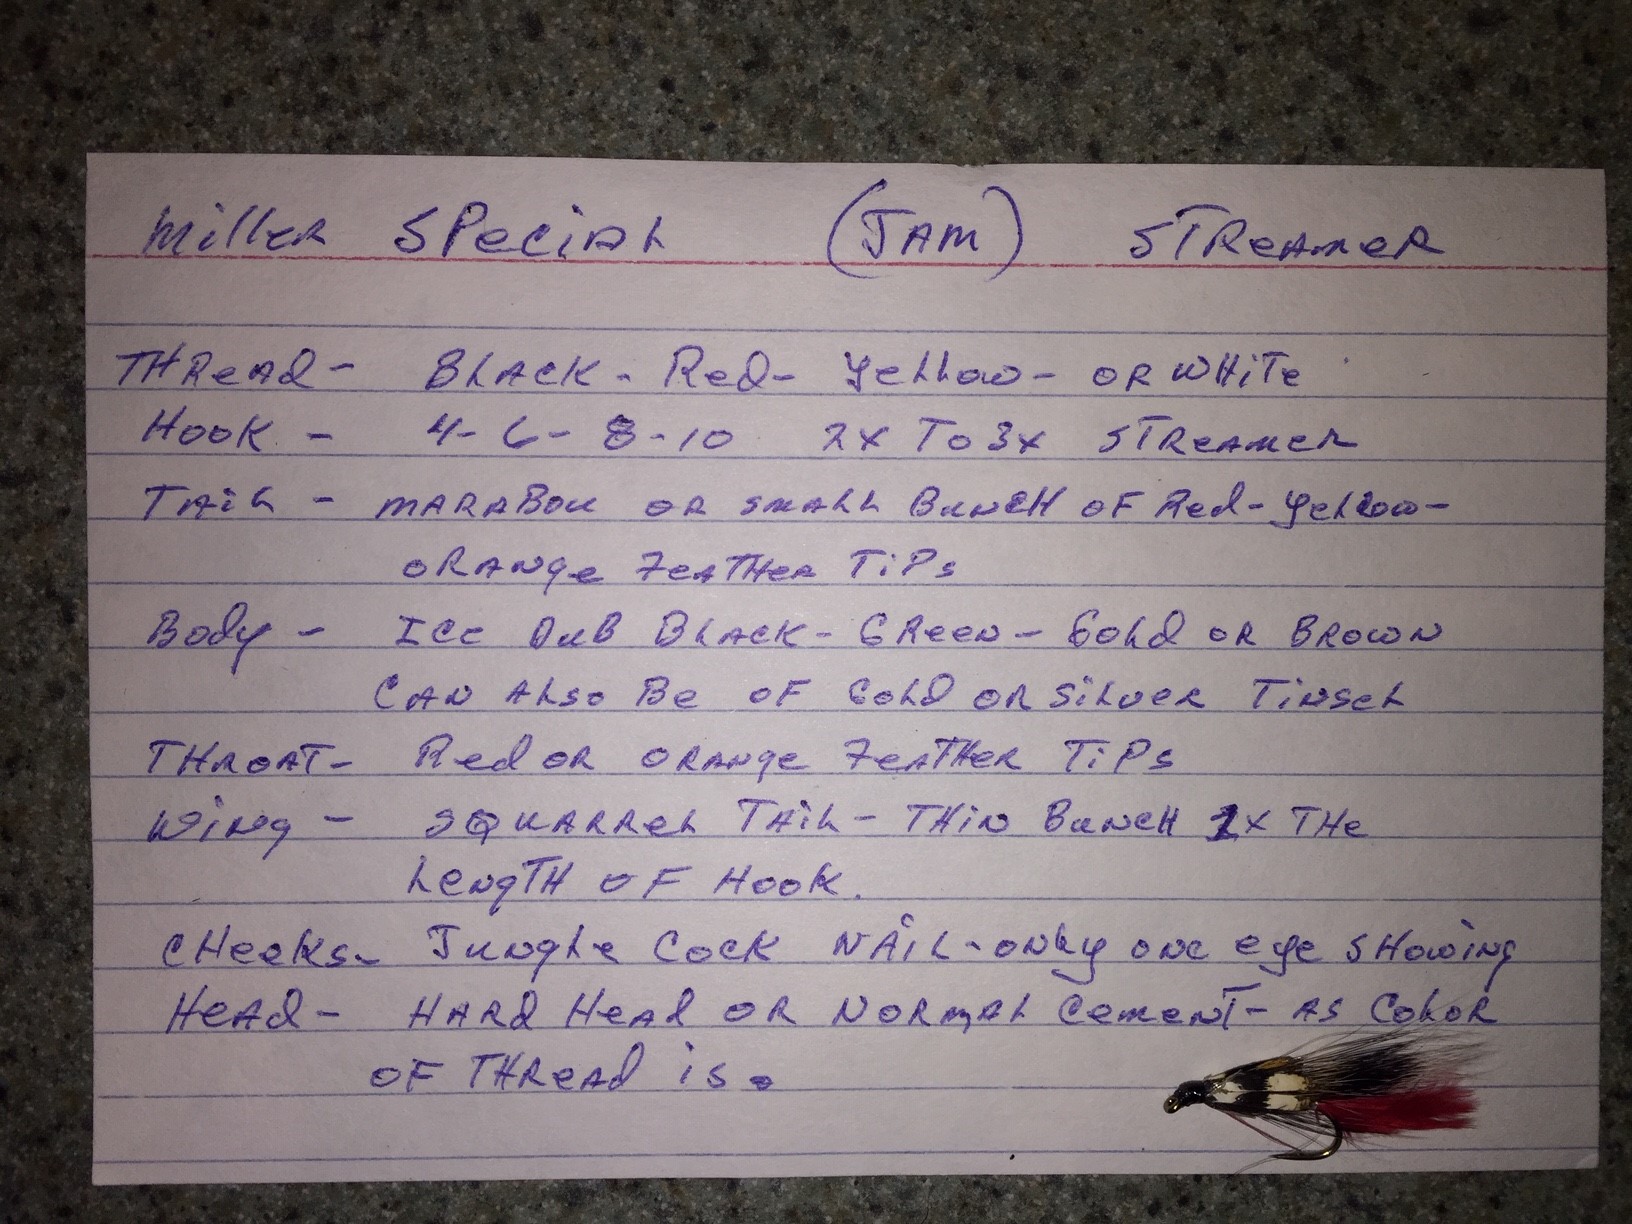 Miller Special (JAM) Streamer
Thread - Black - Red - Yellow - or White
Hook - 4-6-8-10 2x To 3x Streamer
Tail - Marabou or small Bunch of Red-Yellow-
orange Feather Tips
Body - Ice Dub Black - Green - Gold or Brown
Can Also Be of Gold or Silver Tinsel
Throat - Red or orange Feather Tips
Wing - Squarrel Tail - Thin Bunch 1x The
Length of Hook.
Cheeks - Jungle Cock Nail - only one eye showing
Head - Hard Head or Normal Cement - As Color
of Thread is.